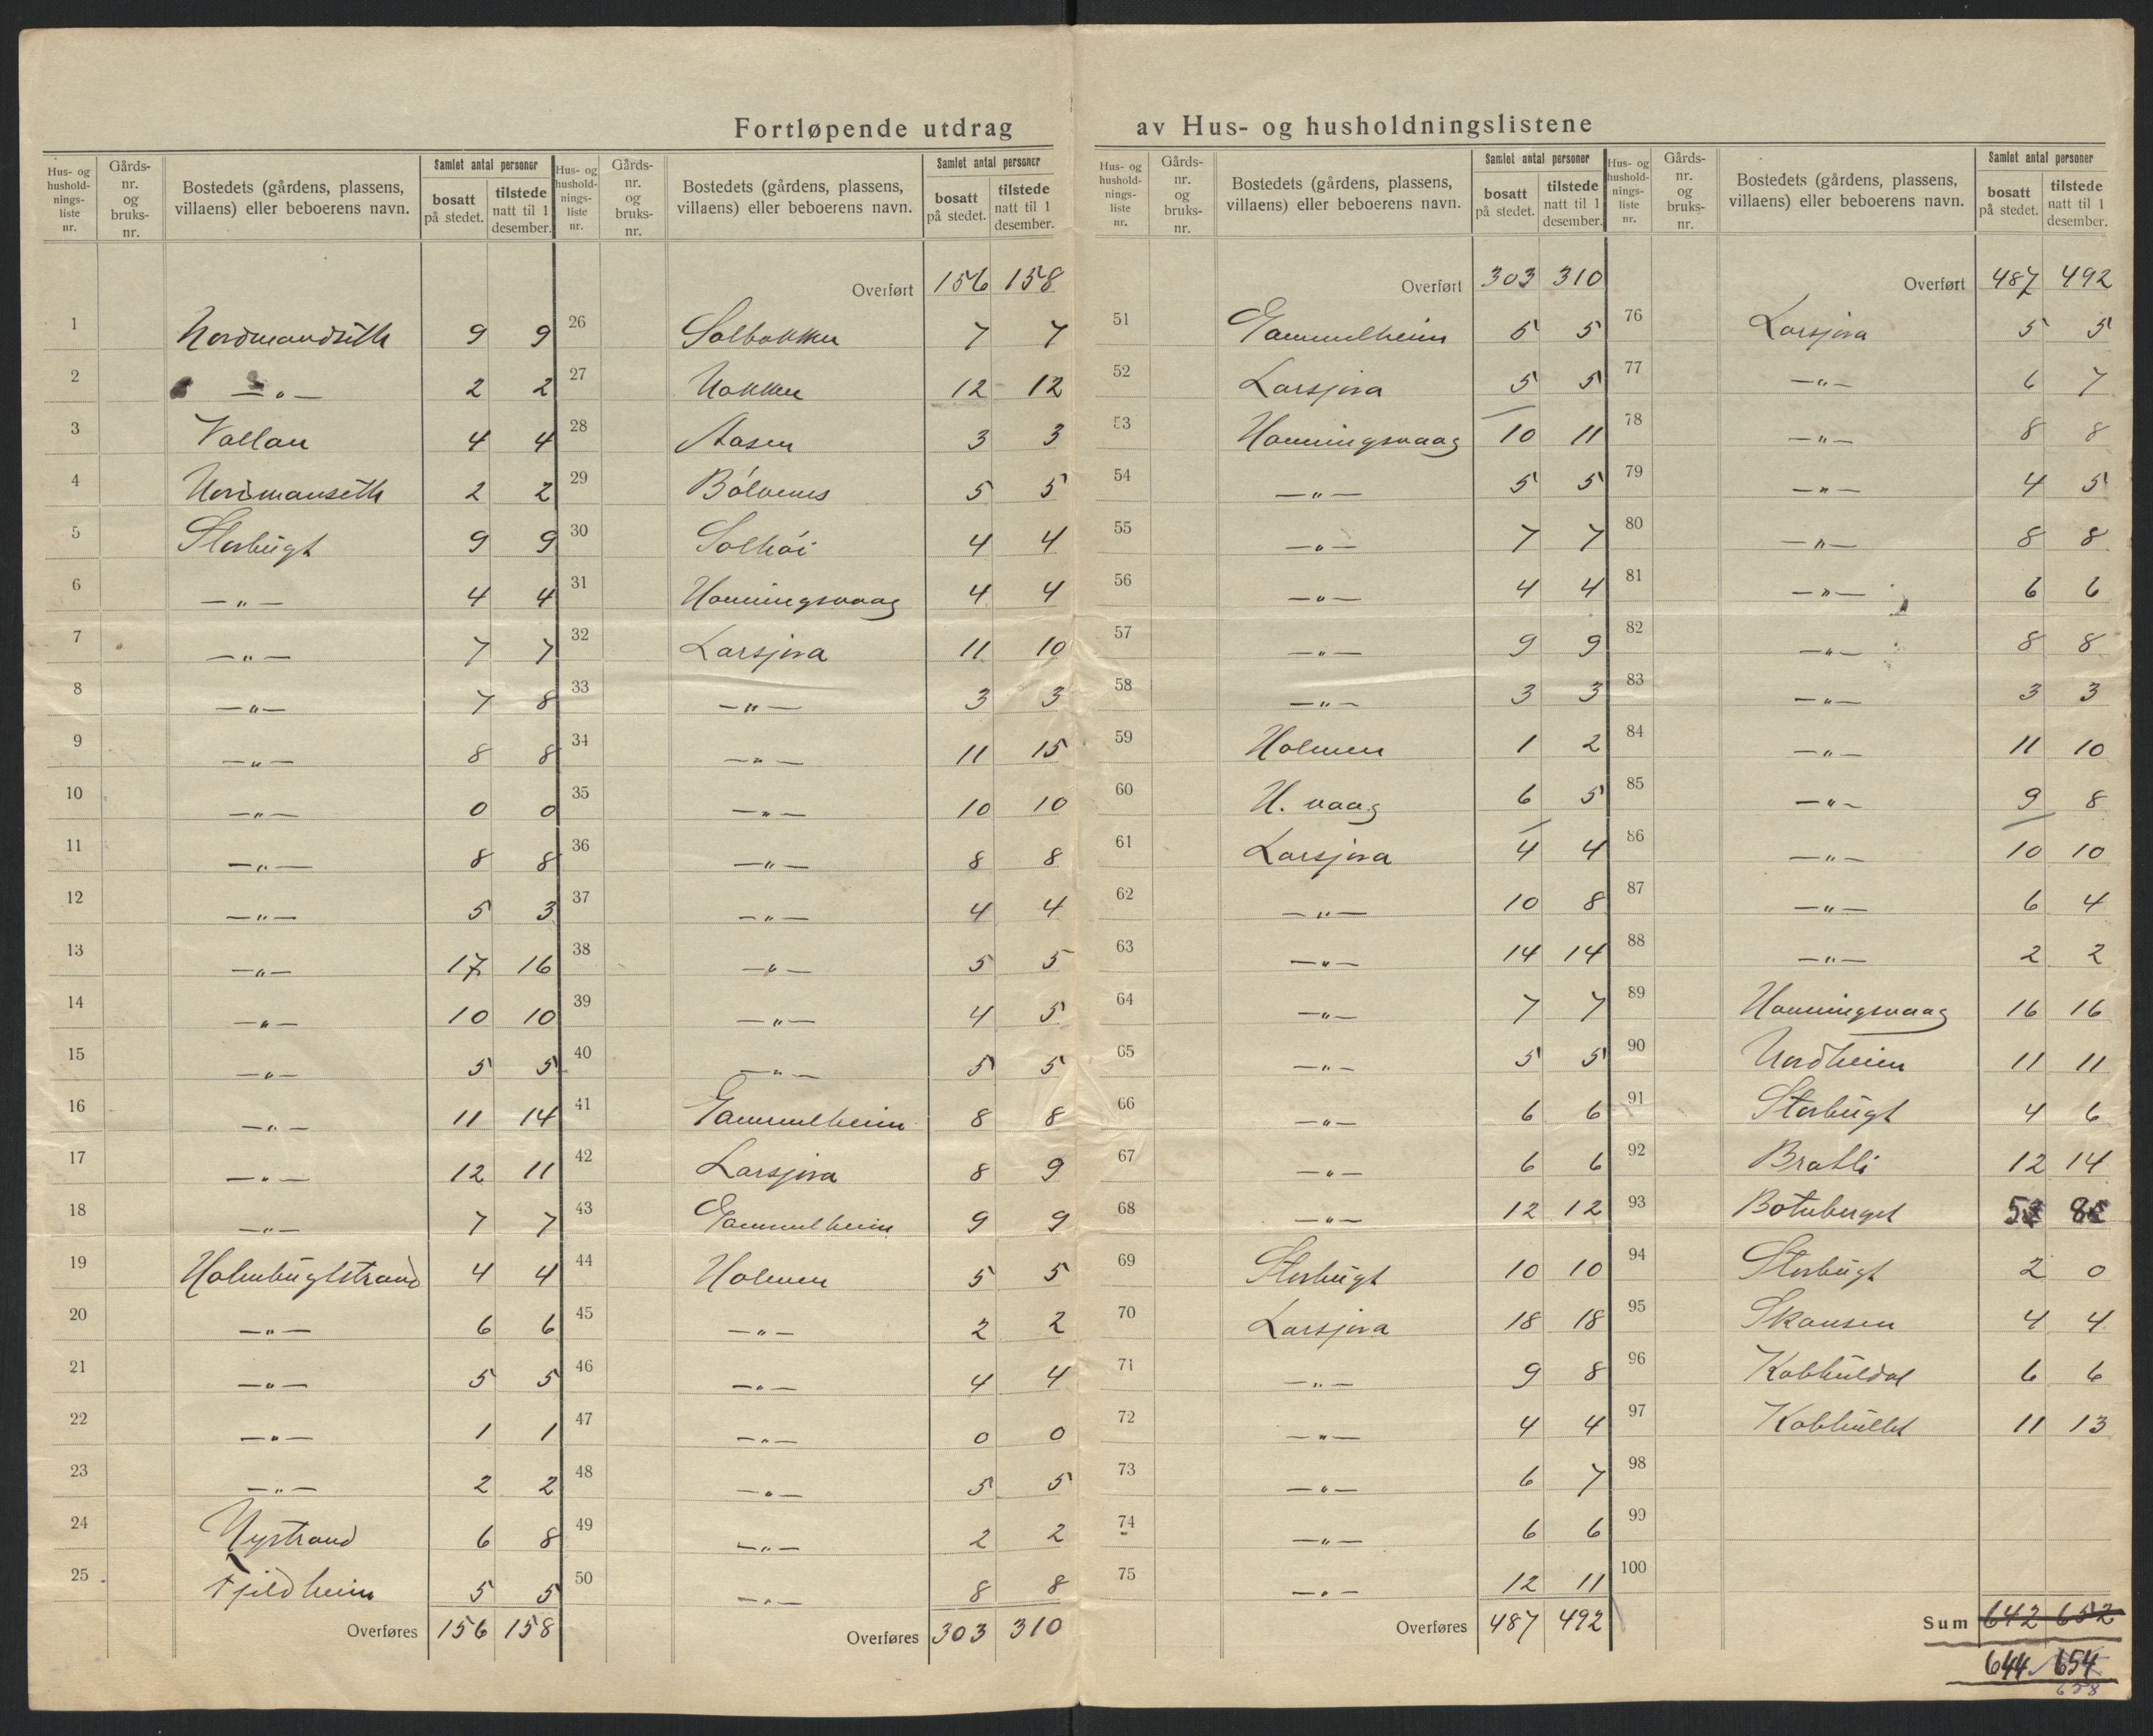 Fortløpende utdrag av Hus- og husholdningslistene
Hus- og husholdnings-liste nr. Gårds-nr. og bruks-nr. Bostedets (gårdens, plassens, villaens) eller beboerens navn. Samlet antal personer bosatt på stedet. tilstede natt til 1 desember.
1 Nordmandseth 9 9
2 —„— 2 2
3 Vollan 4 4
4 Nordmanseth 2 2
5 Storbugt 9 9
6 —„— 4 4
7 —„— 7 7
8 —„— 7 8
9 —„— 8 8
10 —„— 0 0
11 —„— 8 8
12 —„— 5 3
13 —„— 17 16
14 —„— 10 10
15 —„— 5 5
16 —„— 11 14
17 —„— 12 11
18 —„— 7 7
19 Holmbugtstrand 4 4
20 —„— 6 6
21 —„— 5 5
22 —„— 1 1
23 —„— 2 2
24 Nystrand 6 8
25 Fjeldheim 5 5
Overføres 156 158
Hus- og husholdnings-liste nr. Gårds-nr. og bruks-nr. Bostedets (gårdens, plassens, villaens) eller beboerens navn. Samlet antal personer bosatt på stedet. tilstede natt til 1 desember.
Overført 156 158
26 Solbakken 7 7
27 Nakken 12 12
28 Aasen 3 3
29 Bólvenes 5 5
30 Solhói 4 4
31 Honningsvaag 4 4
32 Larsjora 11 10
33 —„— 3 3
34 —„— 11 15
35 —„— 10 10
36 —„— 8 8
37 —„— 4 4
38 —„— 5 5
39 —„— 4 5
40 —„— 5 5
41 Gammelheim 8 8
42 Larsjora 8 9
43 Gammelheim 9 9
44 Holmen 5 5
45 —„— 2 2
46 —„— 4 4
47 —„— 0 0
48 —„— 5 5
49 —„— 2 2
50 —„— 8 8
Overføres 303 310
Hus- og husholdnings-liste nr. Gårds-nr. og bruks-nr. Bostedets (gårdens, plassens, villaens) eller beboerens navn. Samlet antal personer bosatt på stedet. tilstede natt til 1 desember.
Overført 303 310
51 Gammelheim 5 5
52 Larsjora 5 5
53 Honningsvaag 10 11
54 —„— 5 5
55 —„— 7 7
56 —„— 4 4
57 —„— 9 9
58 —„— 3 3
59 Holmen 1 2
60 H. vaag 6 5
61 Larsjora 4 4
62 —„— 10 8
63 —„— 14 14
64 —„— 7 7
65 —„— 5 5
66 —„— 6 6
67 —„— 6 6
68 —„— 12 12
69 Storbugt 10 10
70 Larsjora 18 18
71 —„— 9 8
72 —„— 4 4
73 —„— 6 7
74 —„— 6 6
75 —„— 12 11
Overføres 487 492
Hus- og husholdnings-liste nr. Gårds-nr. og bruks-nr. Bostedets (gårdens, plassens, villaens) eller beboerens navn. Samlet antal personer bosatt på stedet. tilstede natt til 1 desember.
Overført 487 492
76 Larsjora 5 5
77 —„— 6 7
78 —„— 8 8
79 —„— 4 5
80 —„— 8 8
81 —„— 6 6
82 —„— 8 8
83 —„— 3 3
84 —„— 11 10
85 —„— 9 8
86 —„— 10 10
87 —„— 6 4
88 —„— 2 2
89 Honningsvaag 16 16
90 Nordheim 11 11
91 Storbugt 4 6
92 Bratli 12 14
93 Botnberget 5 8
94 Storbugt 2 0
95 Skansen 4 4
96 Kobhuldal 6 6
97 Kobhullet 11 13
98
99
100
Sum 642 652
644 654
658